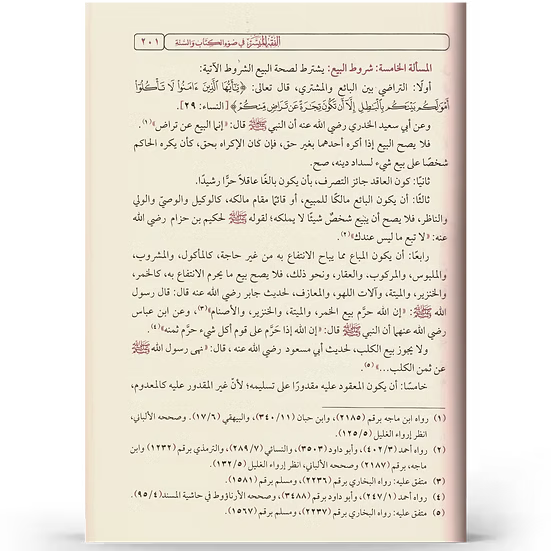 الفقه الميسر في ضوء الكتاب والسنة ٢٠١
المسألة الخامسة: شروط البيع: يشترط لصحة البيع الشروط الآتية:
أولًا: التراضي بين البائع والمشتري، قال تعالى: ﴿يَٰٓأَيُّهَا ٱلَّذِينَ ءَامَنُوا۟ لَا تَأْكُلُوٓا۟
أَمْوَٰلَكُم بَيْنَكُم بِٱلْبَٰطِلِ إِلَّآ أَن تَكُونَ تِجَٰرَةً عَن تَرَاضٍ مِّنكُمْ﴾ [النساء: ٢٩].
وعن أبي سعيد الخدري رضي الله عنه أن النبي ﷺ قال: «إنما البيع عن تراض»(١).
فلا يصح البيع إذا أكره أحدهما بغير حق، فإن كان الإكراه بحق، كأن يكره الحاكم
شخصًا على بيع شيء لسداد دينه، صح.
ثانيًا: كون العاقد جائز التصرف، بأن يكون بالغًا عاقلًا حرًّا رشيدًا.
ثالثًا: أن يكون البائع مالكًا للمبيع، أو قائمًا مقام مالكه، كالوكيل والوصيّ والولي
والناظر، فلا يصح أن يبيع شخصٌ شيئًا لا يملكه؛ لقوله ﷺ لحكيم بن حزام رضي الله
عنه: «لا تبع ما ليس عندك»(٢).
رابعًا: أن يكون المباع مما يباح الانتفاع به من غير حاجة، كالمأكول، والمشروب،
والملبوس، والمركوب، والعقار، ونحو ذلك، فلا يصح بيع ما يحرم الانتفاع به، كالخمر،
والخنزير، والميتة، وآلات اللهو، والمعازف، لحديث جابر رضي الله عنه قال: قال رسول
الله ﷺ: «إن الله حرَّم بيع الخمر، والميتة، والخنزير، والأصنام»(٣)، وعن ابن عباس
رضي الله عنهما أن النبي ﷺ قال: «إن الله إذا حَرَّم على قوم أكل شيء حرَّم ثمنه»(٤).
ولا يجوز بيع الكلب، لحديث أبي مسعود رضي الله عنه، قال: «نهى رسول الله ﷺ
عن ثمن الكلب...»(٥).
خامسًا: أن يكون المعقود عليه مقدورًا على تسليمه؛ لأنّ غير المقدور عليه كالمعدوم،
(١) رواه ابن ماجه برقم (٢١٨٥)، وابن حبان (٣٤٠/١١)، والبيهقي (١٧/٦). وصححه الألباني،
انظر إرواء الغليل (١٢٥/٥).
(٢) رواه أحمد (٤٠٢/٣)، وأبو داود (٣٥٠٣)، والنسائي (٢٨٩/٧)، والترمذي برقم (١٢٣٢) وابن
ماجه، برقم (٢١٨٧) وصححه الألباني، انظر إرواء الغليل (١٣٢/٥).
(٣) متفق عليه: رواه البخاري برقم (٢٢٣٦)، ومسلم برقم (١٥٨١).
(٤) رواه أحمد (٢٤٧/١)، وأبو داود برقم (٣٤٨٨)، وصححه الأرناؤوط في حاشية المسند (٩٥/٤).
(٥) متفق عليه: رواه البخاري برقم (٢٢٣٧)، ومسلم برقم (١٥٦٧).